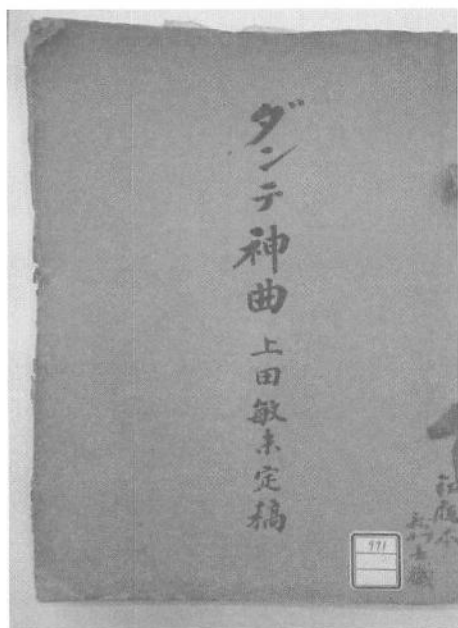 ダンテ神曲 上田敏未定稿
971